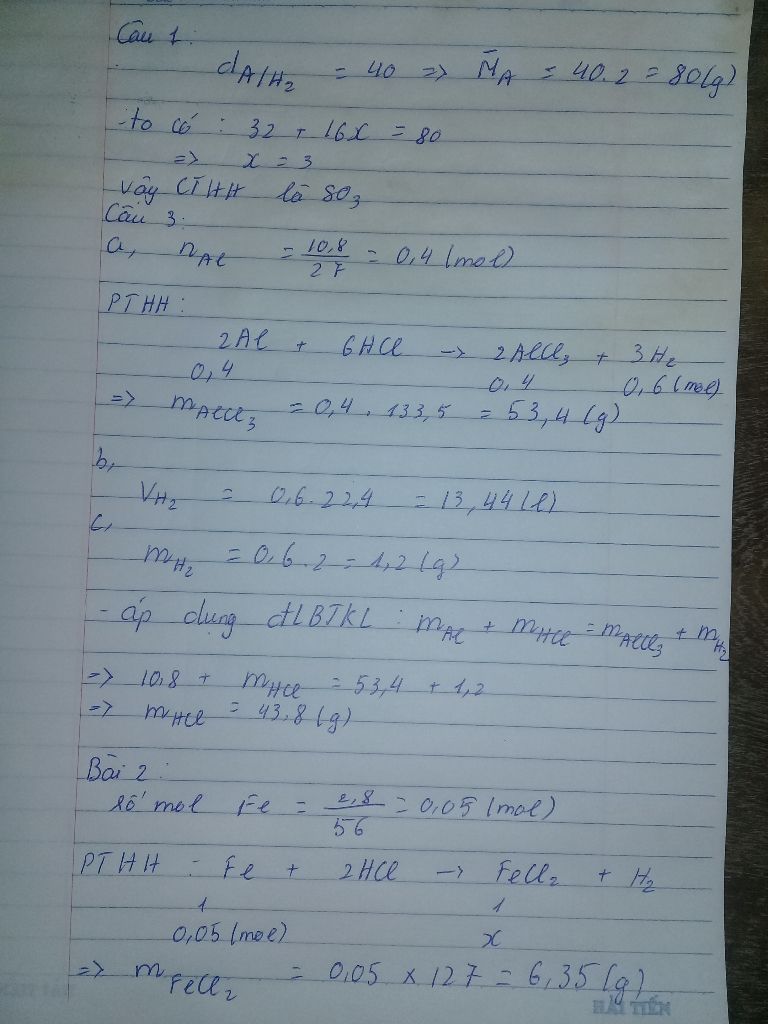 Câu 1:
dA/H₂ = 40 => M̄A = 40.2 = 80(g)
-to có : 32 + 16x = 80
=> x = 3
Vậy CTHH là SO₃
Câu 3:
a, nAl = 10,8/27 = 0,4 (mol)
PTHH:
2Al + 6HCl -> 2AlCl₃ + 3H₂
0,4 0,4 0,6 (mol)
=> mAlCl₃ = 0,4 . 133,5 = 53,4 (g)
b,
VH₂ = 0,6.22,4 = 13,44 (l)
c,
mH₂ = 0,6.2 = 1,2 (g)
- áp dụng đLBTKL : mAl + mHCl = mAlCl₃ + mH₂
=> 10,8 + mHCl = 53,4 + 1,2
=> mHCl = 43,8 (g)
Bài 2:
số mol Fe = 2,8/56 = 0,05 (mol)
PTHH : Fe + 2HCl -> FeCl₂ + H₂
1 1
0,05 (mol) x
=> mFeCl₂ = 0,05 × 127 = 6,35 (g)
HẢI TIẾN